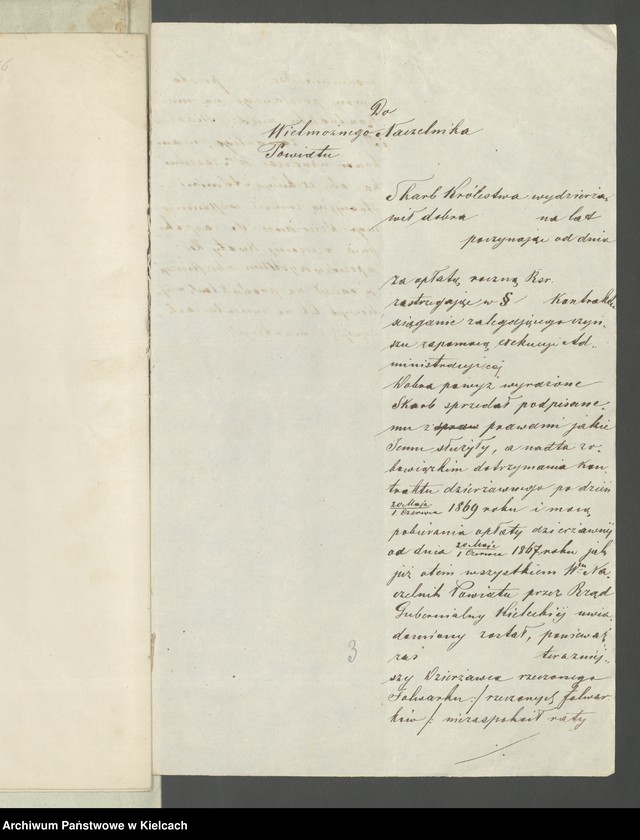 Do
Wielmożnego Naczelnika
Powiatu
Skarb Królestwa wydzierża-
wił dobra na lat
poczynając od dnia
za opłatę roczną Rsr.
zastrzegając w § Kontraktu
ściąganie zalegającego czyn-
szu zapomocą exekucyi Ad-
ministracyjnej
Dobra powyż wyrażone
Skarb sprzedał podpisane-
mu z prawami jakie
Jemu służyły, a nadto zo-
bowiązkiem dotrzymania Kon-
traktu dzierżawnego po dzień
20 Maja
1 Czerwca 1869 roku i mocą
pobierania opłaty dzierżawnej
od dnia 20 Maja
1 Czerwca 1867 roku jak
już o tem wszystkiem Wny Na-
czelnik Powiatu przez Rząd
Gubernialny Kielecki uwia-
domiony został, ponieważ
zaś teraźniej-
szy Dzierżawca rzeczonego
Folwarku :/ rzeczonych folwar-
ków /: niezaspokoił raty
3
Archiwum Państwowe w Kielcach